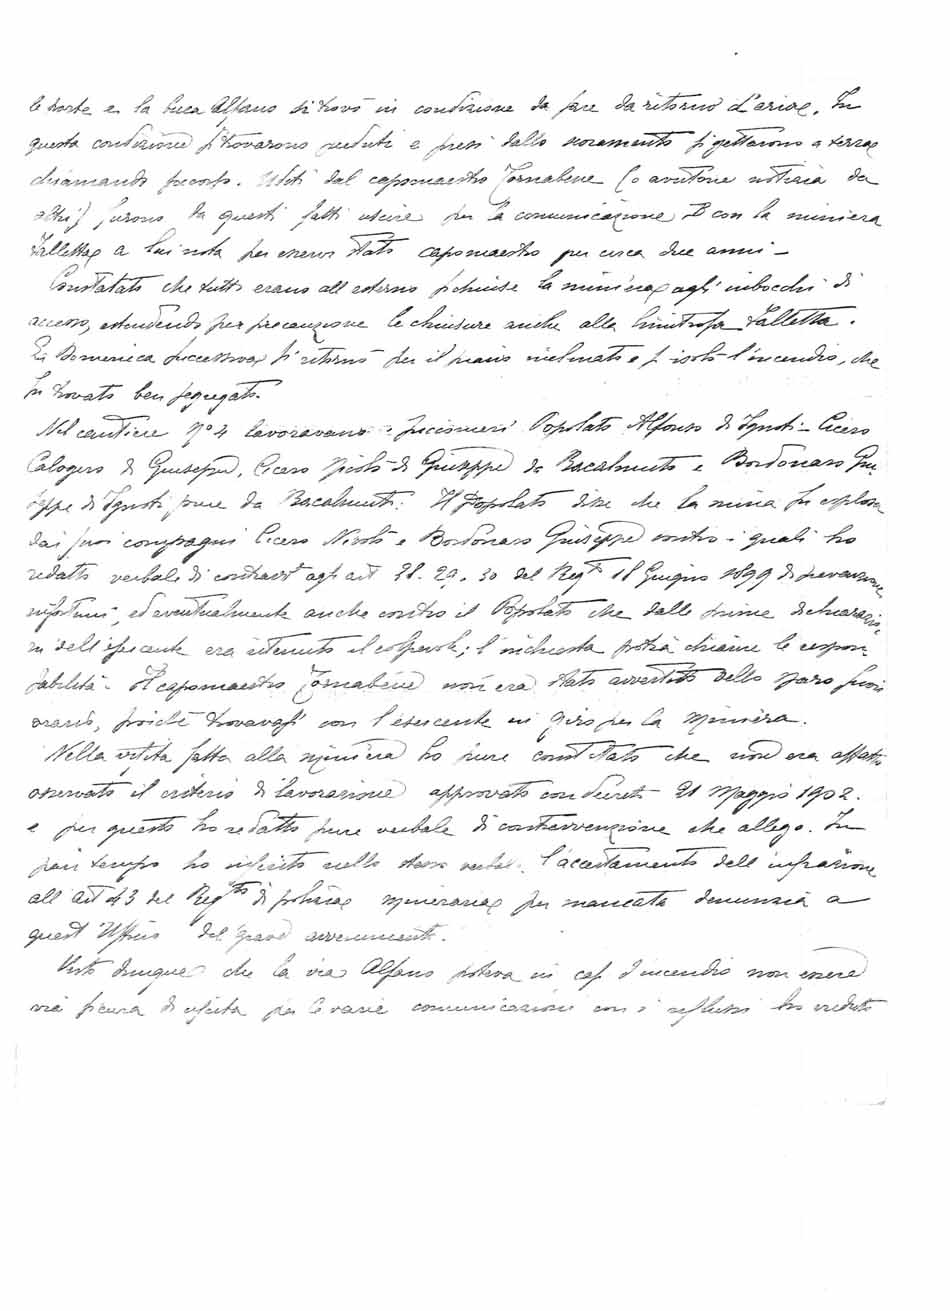 le porte e la buca Alfano si trovò in condizione da fare da ritorno d'aria. In
questa condizione si trovarono perduti e presi dallo scoramento si gettarono a terra
chiamando soccorso. Uditi dal capomaestro Tornabene (o avutone notizia da
altri) furono da questi fatti uscire per la comunicazione B con la miniera
Talletta a lui nota per esservi stato capomaestro per circa due anni –
Constatato che tutti erano all'esterno si chiuse la miniera agli imbocchi di
accesso, estendendo per precauzione le chiusure anche alla limitrofa Talletta.
La Domenica successiva si ritornò per il piano inclinato e si isolò l'incendio, che
fu trovato ben segregato.
Nel cantiere N° 4 lavoravano i picconieri Popolato Alfonso di Ignoti – Cicero
Calogero di Giuseppe, Cicero Nicolò di Giuseppe da Racalmuto e Bordonaro Giu-
seppe di Ignoti pure da Racalmuto. Il Popolato disse che la mina fu esplosa
dai suoi compagni Cicero Nicolò e Bordonaro Giuseppe contro i quali ho
redatto verbale di contravt agli art 28. 29. 30 del Regto 18 Giugno 1899 di prevenzione
infortuni, ed eventualmente anche contro il Popolato che dalle prime dichiarazio-
ni dell'esercente era ritenuto il colpevole; l'inchiesta potrà chiarire le respon-
sabilità – Il capomaestro Tornabene non era stato avvertito dello sparo fuori
orario, poichè trovavasi con l'esercente in giro per la miniera.
Nella visita fatta alla miniera ho pure constatato che non era affatto
osservato il criterio di lavorazione approvato con decreto 21 Maggio 1902.
e per questo ho redatto pure verbale di contravvenzione che allego. In
pari tempo ho inserito nello stesso verbale l'accertamento dell'infrazione
all'art 43 del Regto di polizia mineraria per mancata denunzia a
quest'Ufficio del grave avvenimento.
Visto dunque che la via Alfano poteva in caso d'incendio non essere
via sicura di uscita per le varie comunicazioni con i riflussi ho creduto